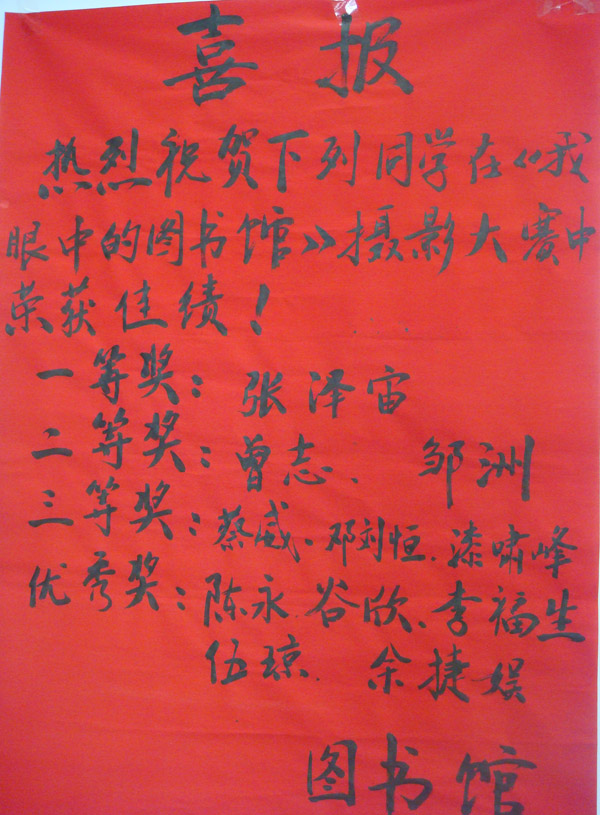 喜报
热烈祝贺下列同学在《我
眼中的图书馆》摄影大赛中
荣获佳绩！
一等奖：张泽宙
二等奖：曾志、邹洲
三等奖：蔡威、邓刘恒、漆啸峰
优秀奖：陈永、谷欣、李福生
伍琼、余捷娱
图书馆